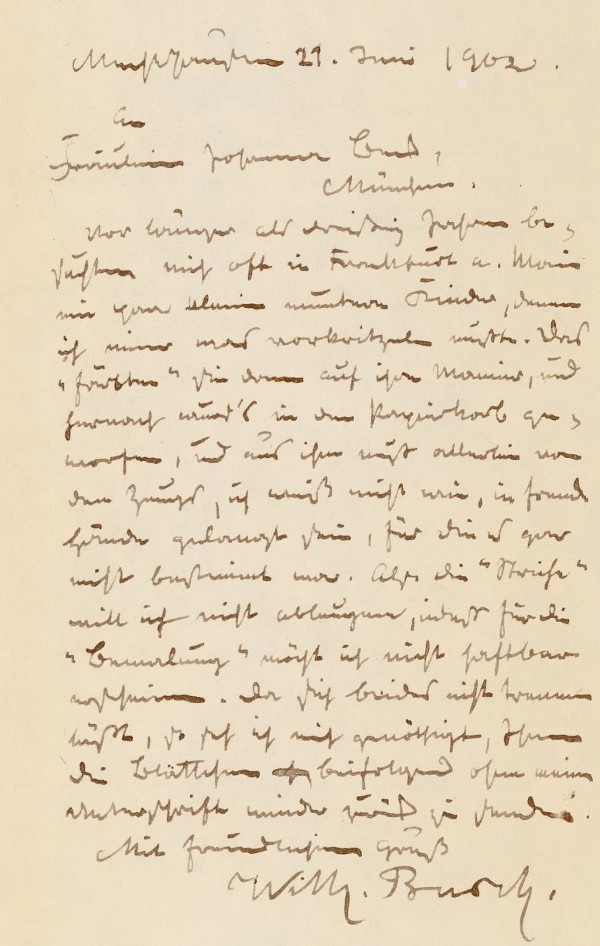 Mechtshausen 21. Juni 1902.
An
Fräulein Johanna
München.
Vor länger als dreißig Jahren be-
suchten mich oft in Frankfurt a. Main
ein paar kleine muntere Kinder, denen
ich immer was vorkritzeln mußte. Das
"färbten" sie dann auf ihre Manier, und
hernach wurd's in den Papierkorb ge-
worfen, und aus ihm muß allerlei von
dem Zeugs, ich weiß nicht wie, in fremde
Hände gelangt sein, für die es gar
nicht bestimmt war. Also die "Striche"
will ich nicht ableugnen, indeß für die
"Bemalung" möcht ich nicht haftbar
erscheinen. Da sich beides nicht trennen
läßt, so seh ich mich genöthigt, Ihnen
die Blättchen beifolgend ohne meine
Unterschrift wieder zurück zu senden.
Mit freundlichem Gruß
Wilh. Busch.